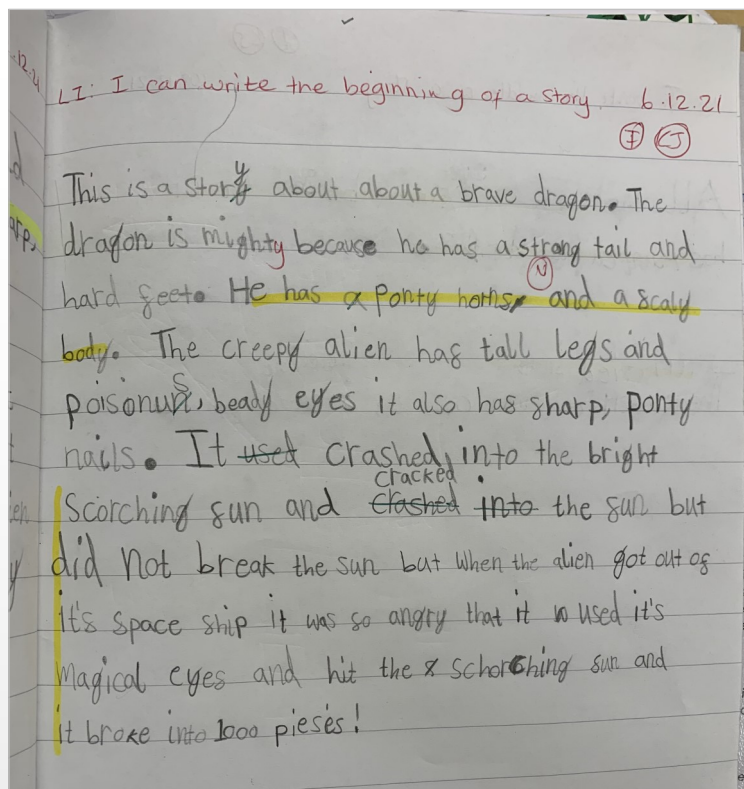 12.21
LI: I can write the beginning of a story 6.12.21
I CJ
This is a story about about a brave dragon. The
dragon is mighty because he has a strong tail and
V
hard feet. He has a ponty horns, and a scaly
body. The creepy alien has tall legs and
poisonus, beady eyes it also has sharp, ponty
nails. It used crashed, into the bright
cracked
Scorching sun and crashed into the sun but
did not break the sun but when the alien got out of
it's space ship it was so angry that it used it's
magical eyes and hit the schorching sun and
it broke into 1000 pieses!